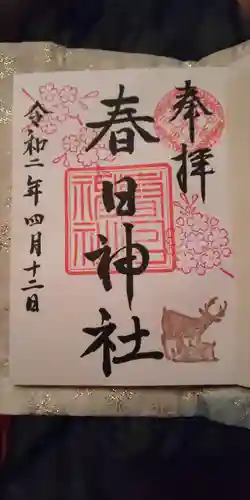 奉拝
春日神社
令和二年四月十二日